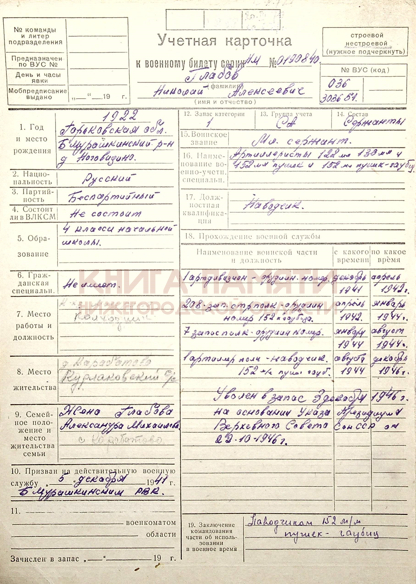 № команды и литер подразделения
Предназначен по ВУС №
День и часы явки
Мобпредписание выдано „ “ 19 г.
Учетная карточка
к военному билету серии № 0129840.
Глабов
фамилия
Николай Алексеевич
(имя и отчество)
строевой
нестроевой
(нужное подчеркнуть)
№ ВУС (код)
036
1. Год и место рождения
1922
Горьковская обл.
Б.Мурашкинский р-н
2. Национальность
Русский
3. Партийность
Беспартийный
4. Состоит ли в ВЛКСМ
Не состоит
5. Образование
4 класса начальной школы.
6. Гражданская специальн.
Не имеет.
7. Место работы и должность
колхозник
8. Место жительства
9. Семейное положение и место жительства семьи
Жена Глабова
Александра Михайловна
10. Призван на действительную военную службу 5 декабря 1941
Б.Мурашкинским РВК.
11.
военкоматом
области
Зачислен в запас „ “ 19 г.
12. Запас категории
1
13. Группа учета
СА
14. Состав
Сержанты
15. Военное звание
Мл. сержант.
16. Наименование военно-учетн. специальн.
Артиллеристы 122 мм
152 мм пушек и 152 мм пушек-гаубиц
17. Должностная квалификация
Наводчик.
18. Прохождение военной службы
Наименование воинской части и должность
с какого времени
по какое время
декабрь 1941
апрель 1942 г.
номер 152 гаубиц.
апрель 1942.
январь 1944 г.
7 запасполк-орудийн номер.
январь 1944
август 1944 г.
Гартполк-наводчик.
152 мм пушк. гауб.
август 1944
декабрь 1946 г.
Уволен в запас 3 декабря 1946 г.
на основании Указа Президиума
Верховного Совета СССР от
22-10-1946 г.
19. Заключение командования части об использовании в военное время
Наводчиком 152 м/м
пушек-гаубиц
КНИГА ПАМЯТИ